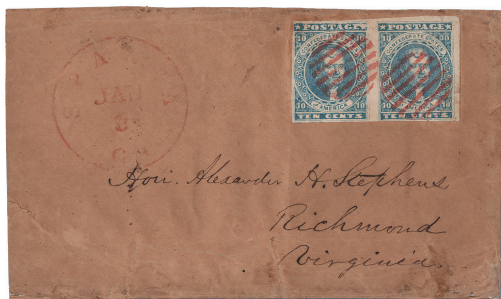 POSTAGE POSTAGE
CONFEDERATE STATES
10 10 10 10
AMERICA
TEN CENTS TEN CENTS
JAN
Hon. Alexander H. Stephens
Richmond
Virginia.